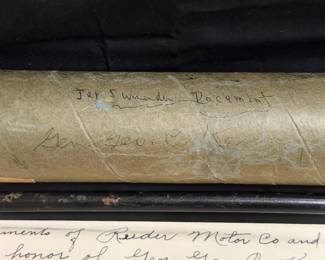 Jap Surrender Document
Gen. Geo. C.
ments of Reeder Motor Co and
honor of Gen Geo